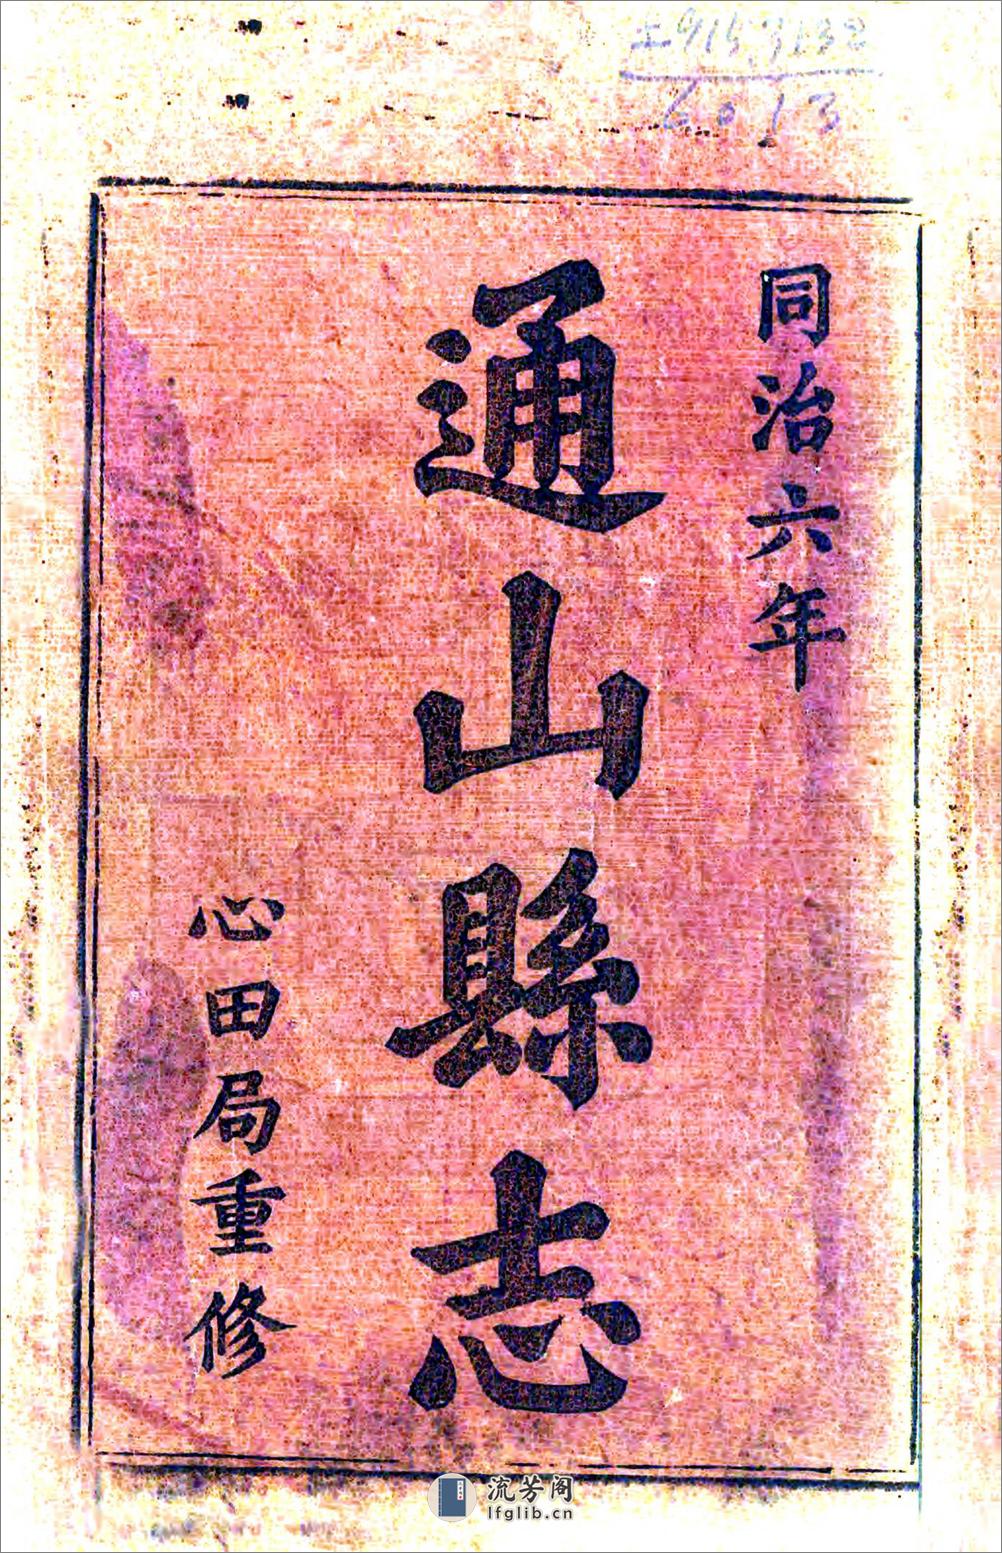 土915.3132
6013
同治六年
通山縣志
心田局重修
流芳阁
lfglib.cn